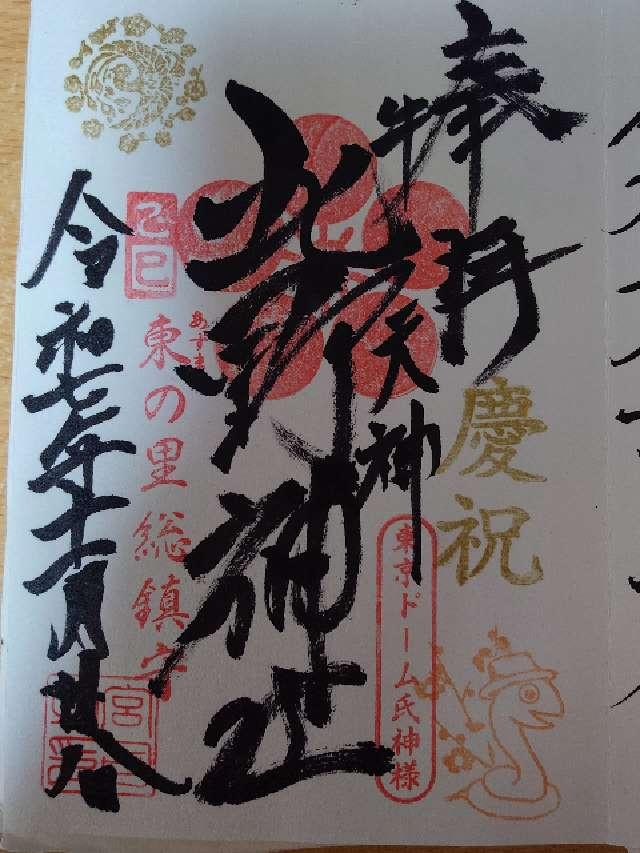 奉拝
慶祝
牛天神
東京ドーム氏神様
北野神社
あずま
東の里総鎮守
己巳
令和七年十一月廿八
宮司